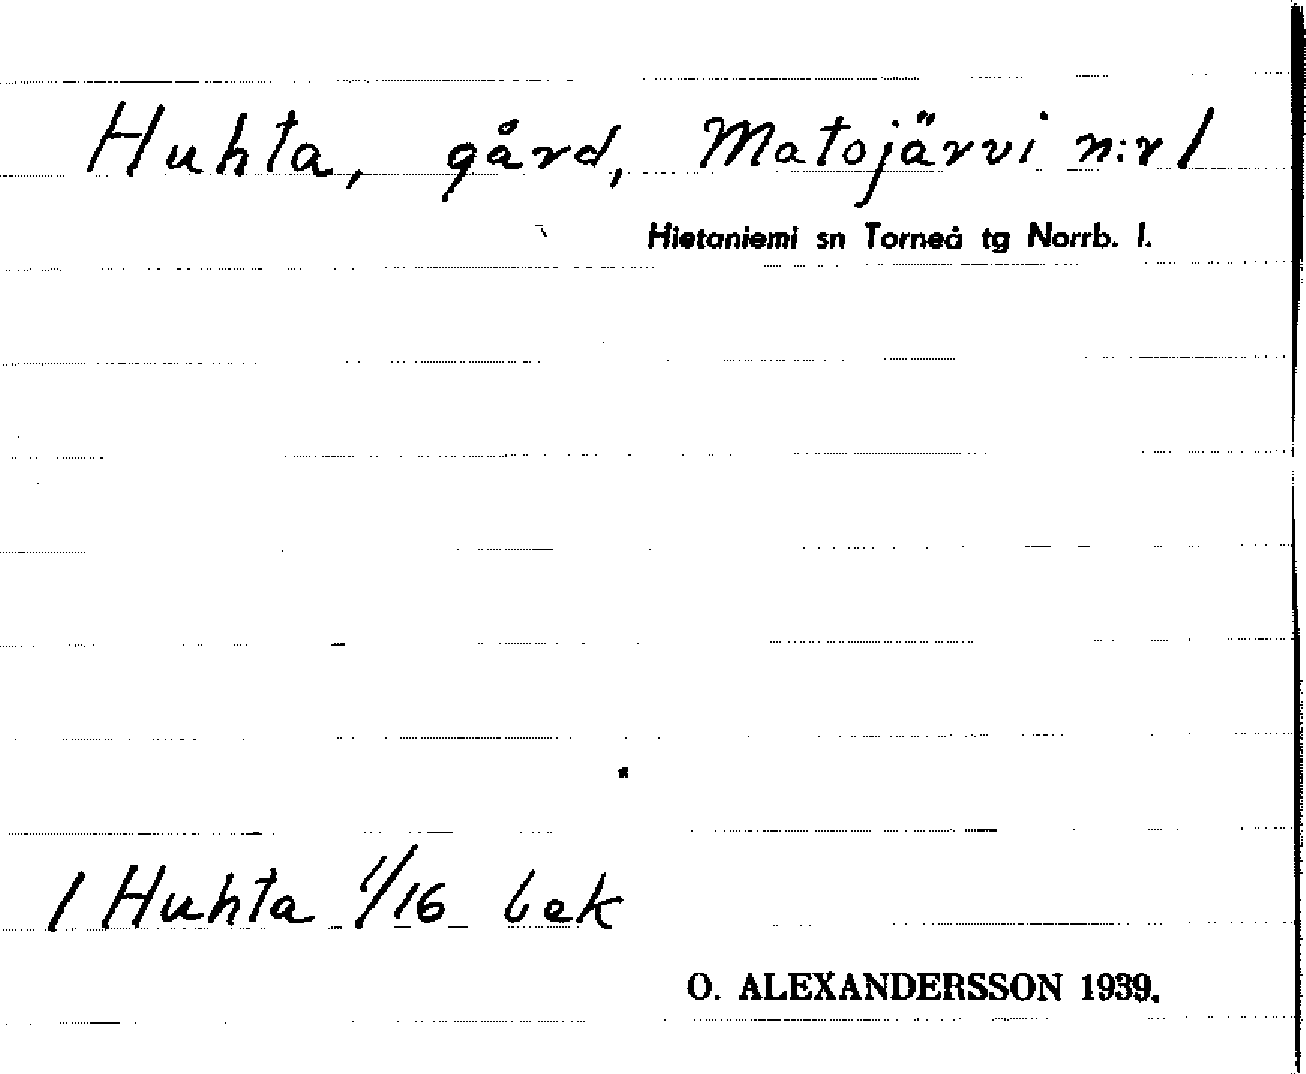 Huhta, gård, Matojärvi n:r 1
Hietaniemi sn Torneå tg Norrb. l.
1 Huhta 1/16 bek
O. ALEXANDERSSON 1939.